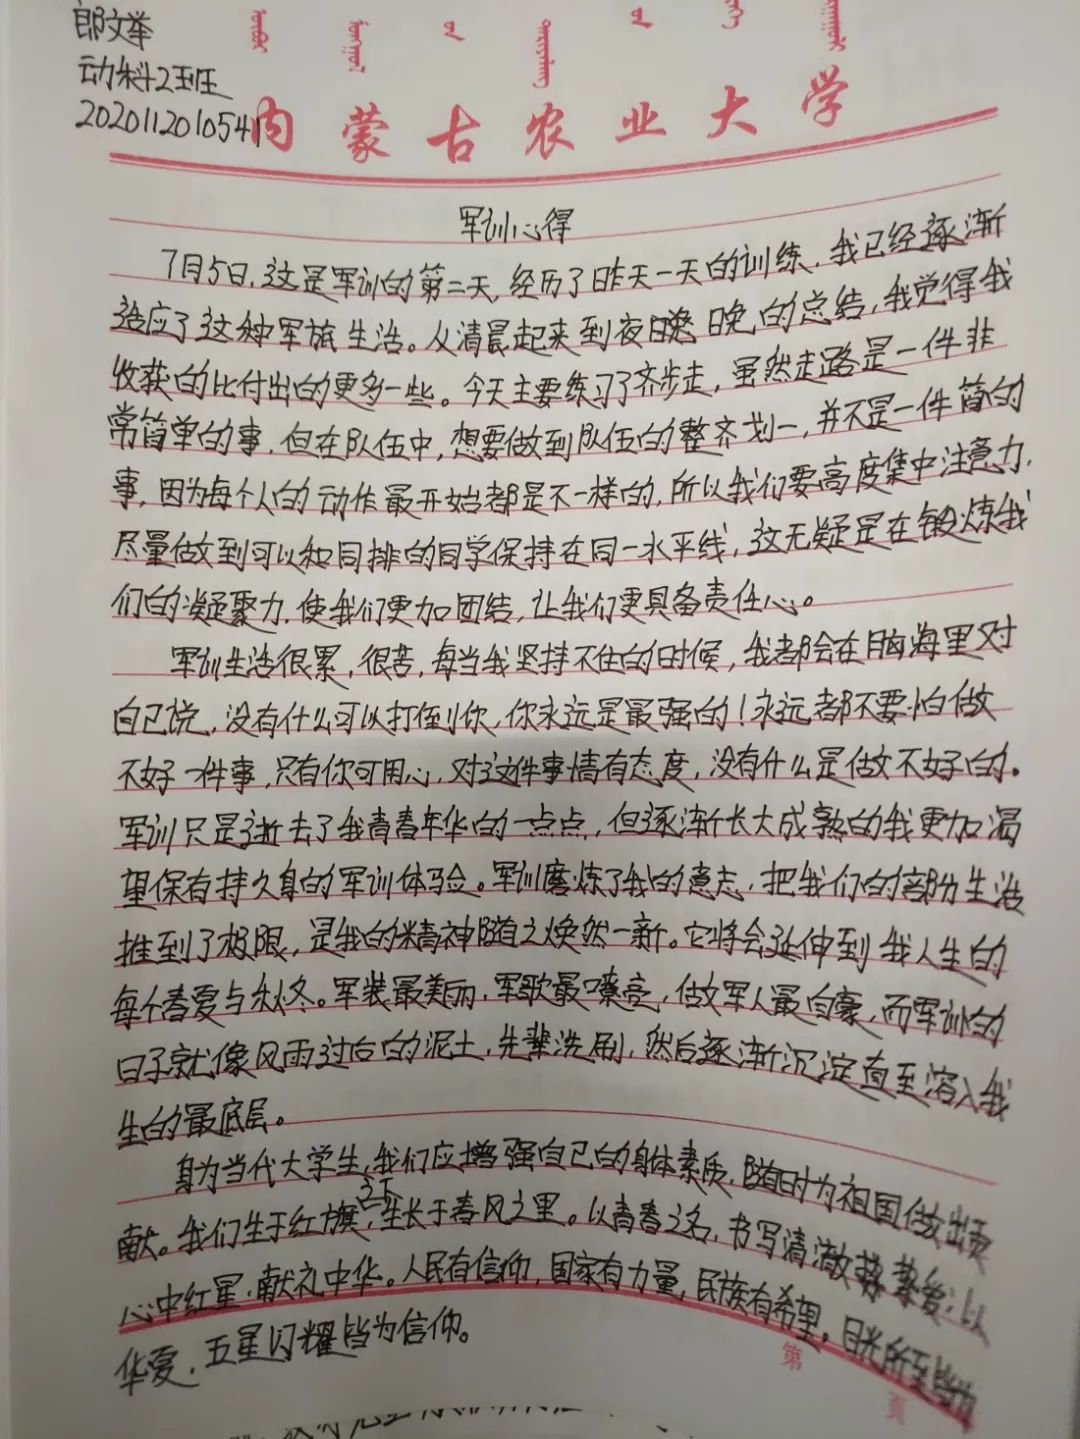 郎文举
动科2班
2020112010541
内蒙古农业大学
军训心得
7月5日,这是军训的第二天,经历了昨天一天的训练,我已经逐渐
适应了这种军旅生活。从清晨起来到夜晚 晚的总结,我觉得我
收获的比付出的更多一些。今天主要练习了齐步走,虽然走路是一件非
常简单的事,但在队伍中,想要做到队伍的整齐划一,并不是一件简的
事,因为每个人的动作最开始都是不一样的,所以我们要高度集中注意力,
尽量做到可以和同排的同学保持在同一水平线,这无疑是在锻炼我
们的凝聚力,使我们更加团结,让我们更具备责任心。
军训生活很累,很苦,每当我坚持不住的时候,我都会在脑海里对
自己说,没有什么可以打倒你,你永远是最强的!永远都不要怕做
不好一件事,只有你可用心,对这件事情有态度,没有什么是做不好的。
军训只是逝去了我青春年华的一点点,但逐渐长大成熟的我更加渴
望保有持久身的军训体验。军训磨炼了我的意志,把我们的部分生活
推到了极限,是我的精神随之焕然一新。它将会延伸到我人生的
每个春夏与秋冬。军装最美丽,军歌最嘹亮,做军人最自豪,而军训的
日子就像风雨过后的泥土,先辈洗刷,然后逐渐沉淀直至溶入我
生的最底层。
身为当代大学生,我们应增强自己的身体素质,随时为祖国做出贡
献。我们生于红旗下,生长于春风之里。以青春之名,书写清澈挚爱;以
心中红星,献礼中华。人民有信仰,国家有力量,民族有希望,目光所至皆为
华夏,五星闪耀皆为信仰。
第 页